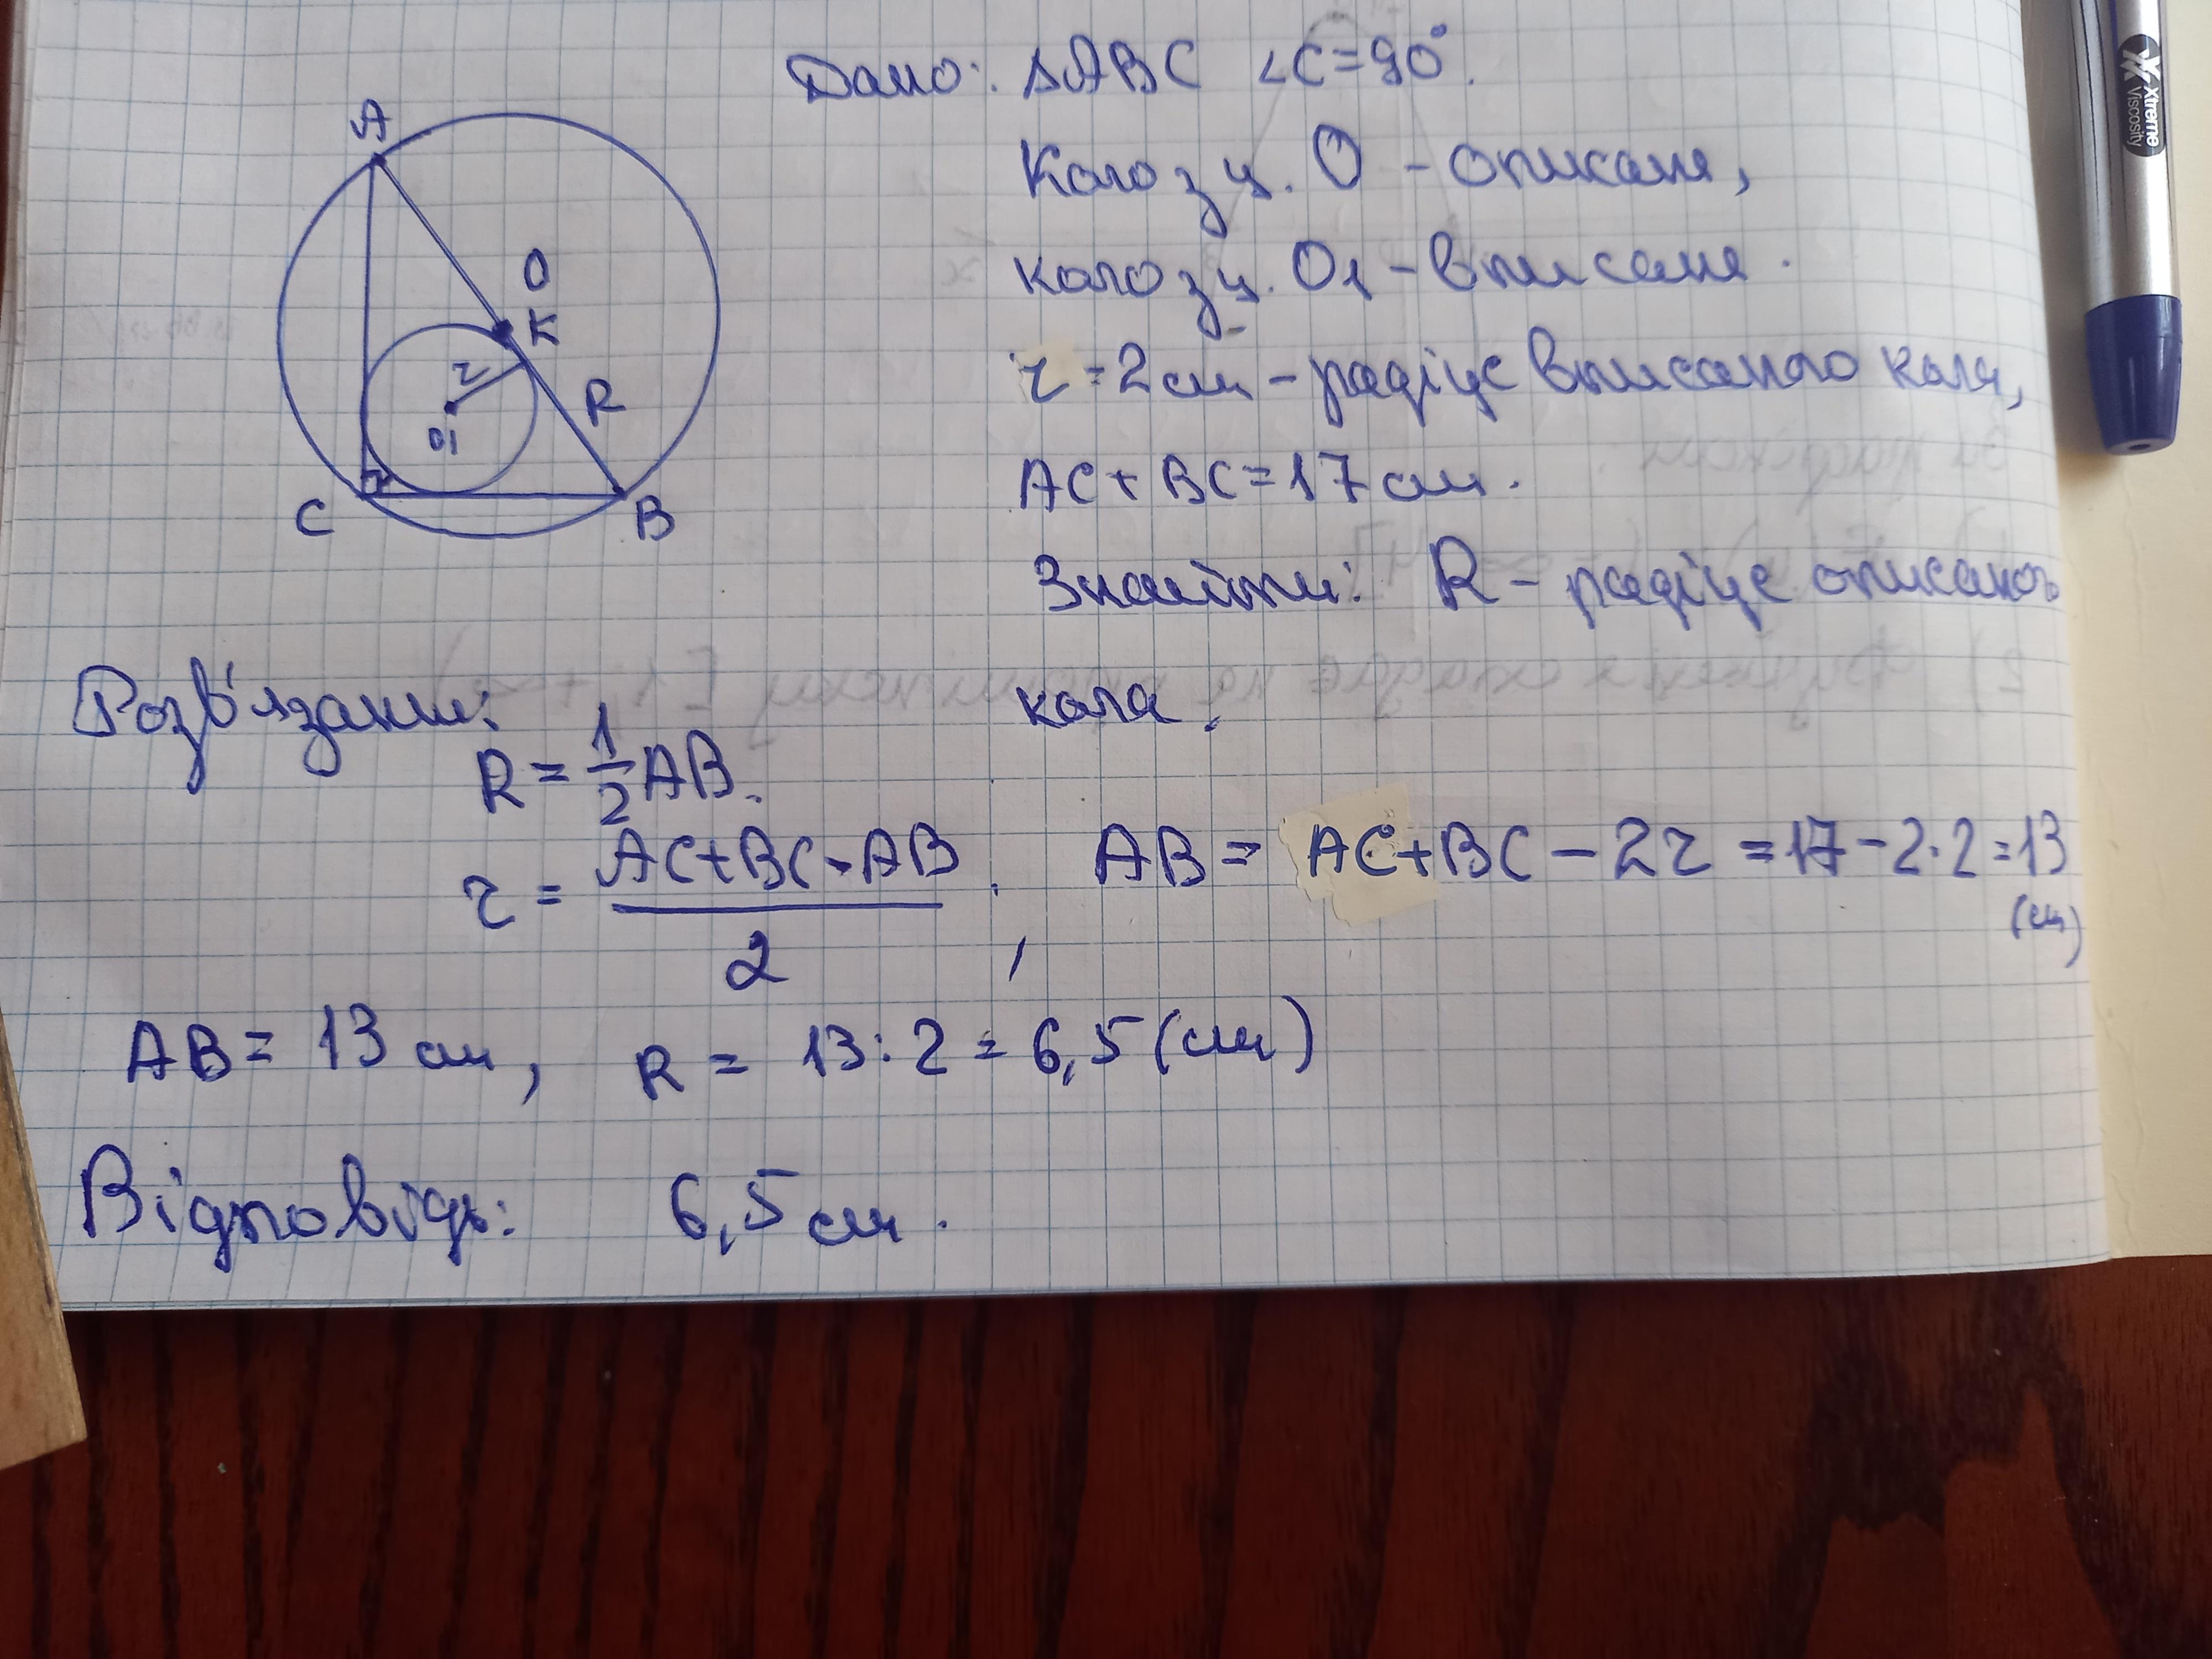 Дано: ΔABC ∠C=90°.
Коло з ц. O - описане,
коло з ц. O1 - вписане.
r = 2 см - радіус вписаного кола,
AC + BC = 17 см.
Знайти: R - радіус описаного
кола.
A
O
K
r
R
O1
C
B
Розв'язання:
R = 1/2 AB.
r = (AC+BC-AB)/2, AB = AC+BC - 2r = 17 - 2·2 = 13
(см)
AB = 13 см, R = 13:2 = 6,5 (см)
Відповідь: 6,5 см.
Xtreme
Viscosity